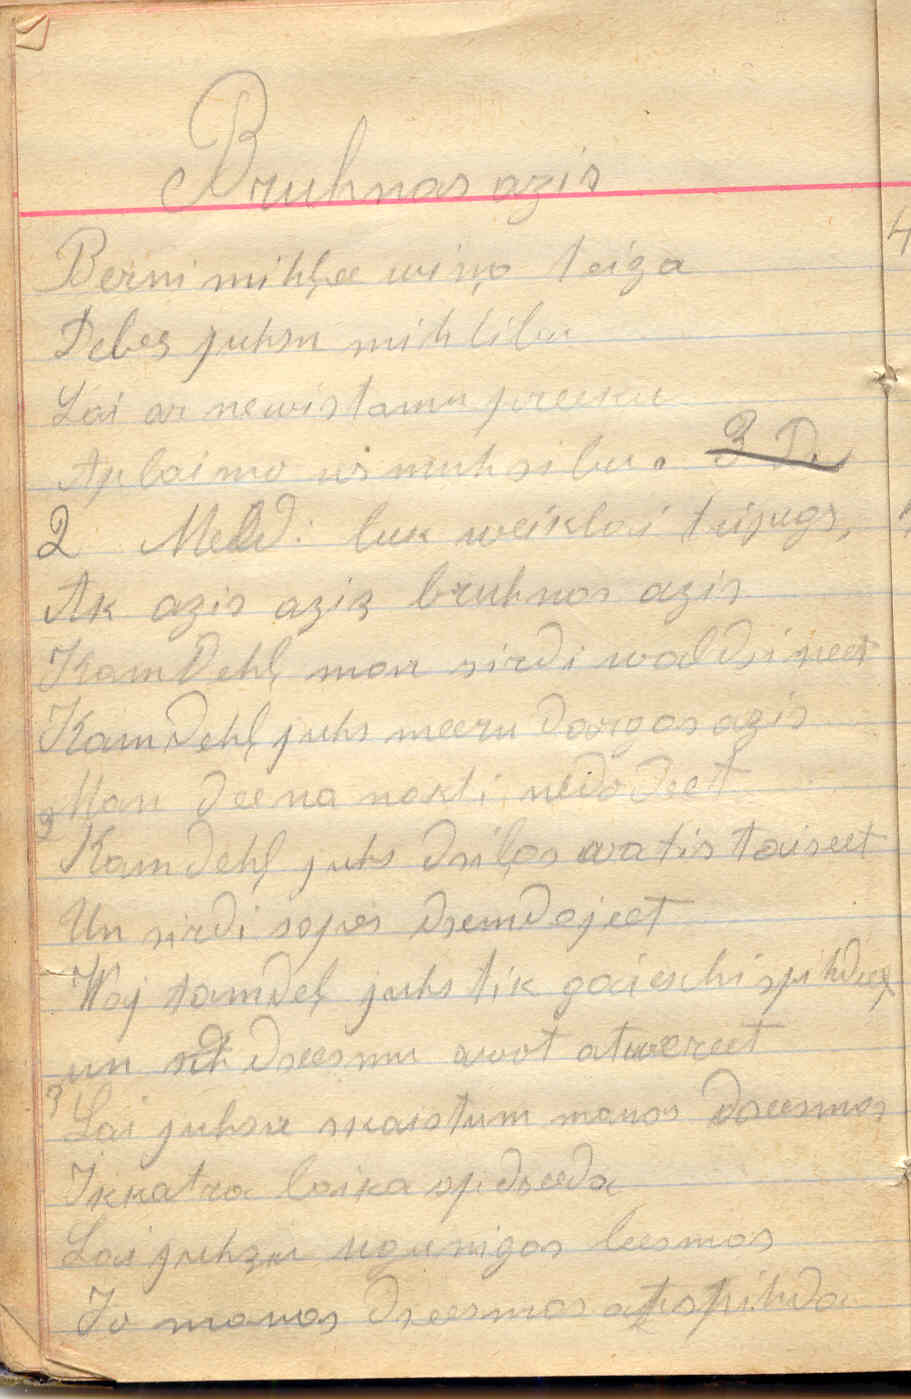 Bruhnas azis
Berni mihļee wiņo teiza
Debes juhsu mihlibu
Lai ar newistamu preeku
Aplaimo us muhsibu. 3 D.
2 Meld: luk weiklais trijugs,
Ak azis azis bruhnas azis
Kamdehļ man sirdi waldsineet
Kamdehļ juhs meeru dargas azis
Man deena nakti, nedodeet
2 Kamdehļ juhs dsiļas watis taiseet
Un sirdi sopes dsemdejeet
Waj tamdeļ juhs tik gaieschi spihdeet
un dseesmu awot atwereet
3 Lai juhsu skaistum manas dseesmas
Ikkatra laika apdseeda
Lai juhsu ugunigas leesmas
Is manas dseesmas atspihda
4